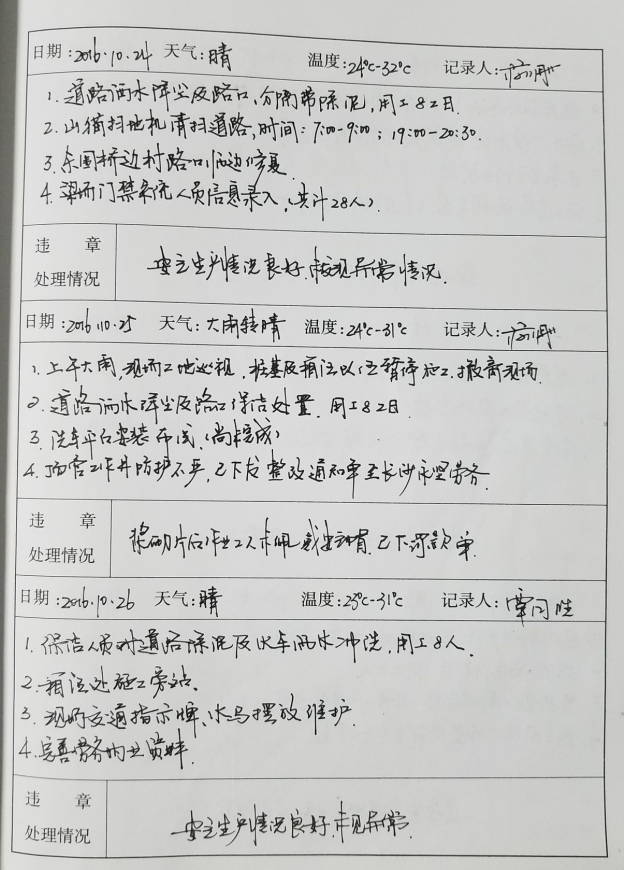 日期：2016.10.24 天气：晴 温度：24℃-32℃ 记录人：
1. 道路洒水降尘及路口，分隔带除泥，用工8工日.
2. 山猫扫地机清扫道路，时间：7:00-9:00；19:00-20:30.
3. 东围桥边村路口临边修复.
4. 梁场门禁系统人员信息录入，(共计28人).
违 章
处理情况
安全生产情况良好，未发现异常情况.
日期：2016.10.25 天气：大雨转晴 温度：24℃-31℃ 记录人：
1. 上午大雨，现场工地巡视，桩基及箱涵以位暂停施工，撤离现场.
2. 道路洒水降尘及路口保洁处置，用工8工日
3. 洗车平台安装布线，(尚未完成)
4. 顶管工作井防护不严，已下发整改通知单至长沙永坚劳务.
违 章
处理情况
作业工人未佩戴安全帽，已下罚款单.
日期：2016.10.26 天气：晴 温度：23℃-31℃ 记录人：
1. 保洁人员对道路除泥及火车洒水冲洗，用工8人.
2. 箱涵处施工旁站.
3. 现场交通指示牌、水马摆放维护.
4. 完善劳务内业资料.
违 章
处理情况
安全生产情况良好，未见异常.